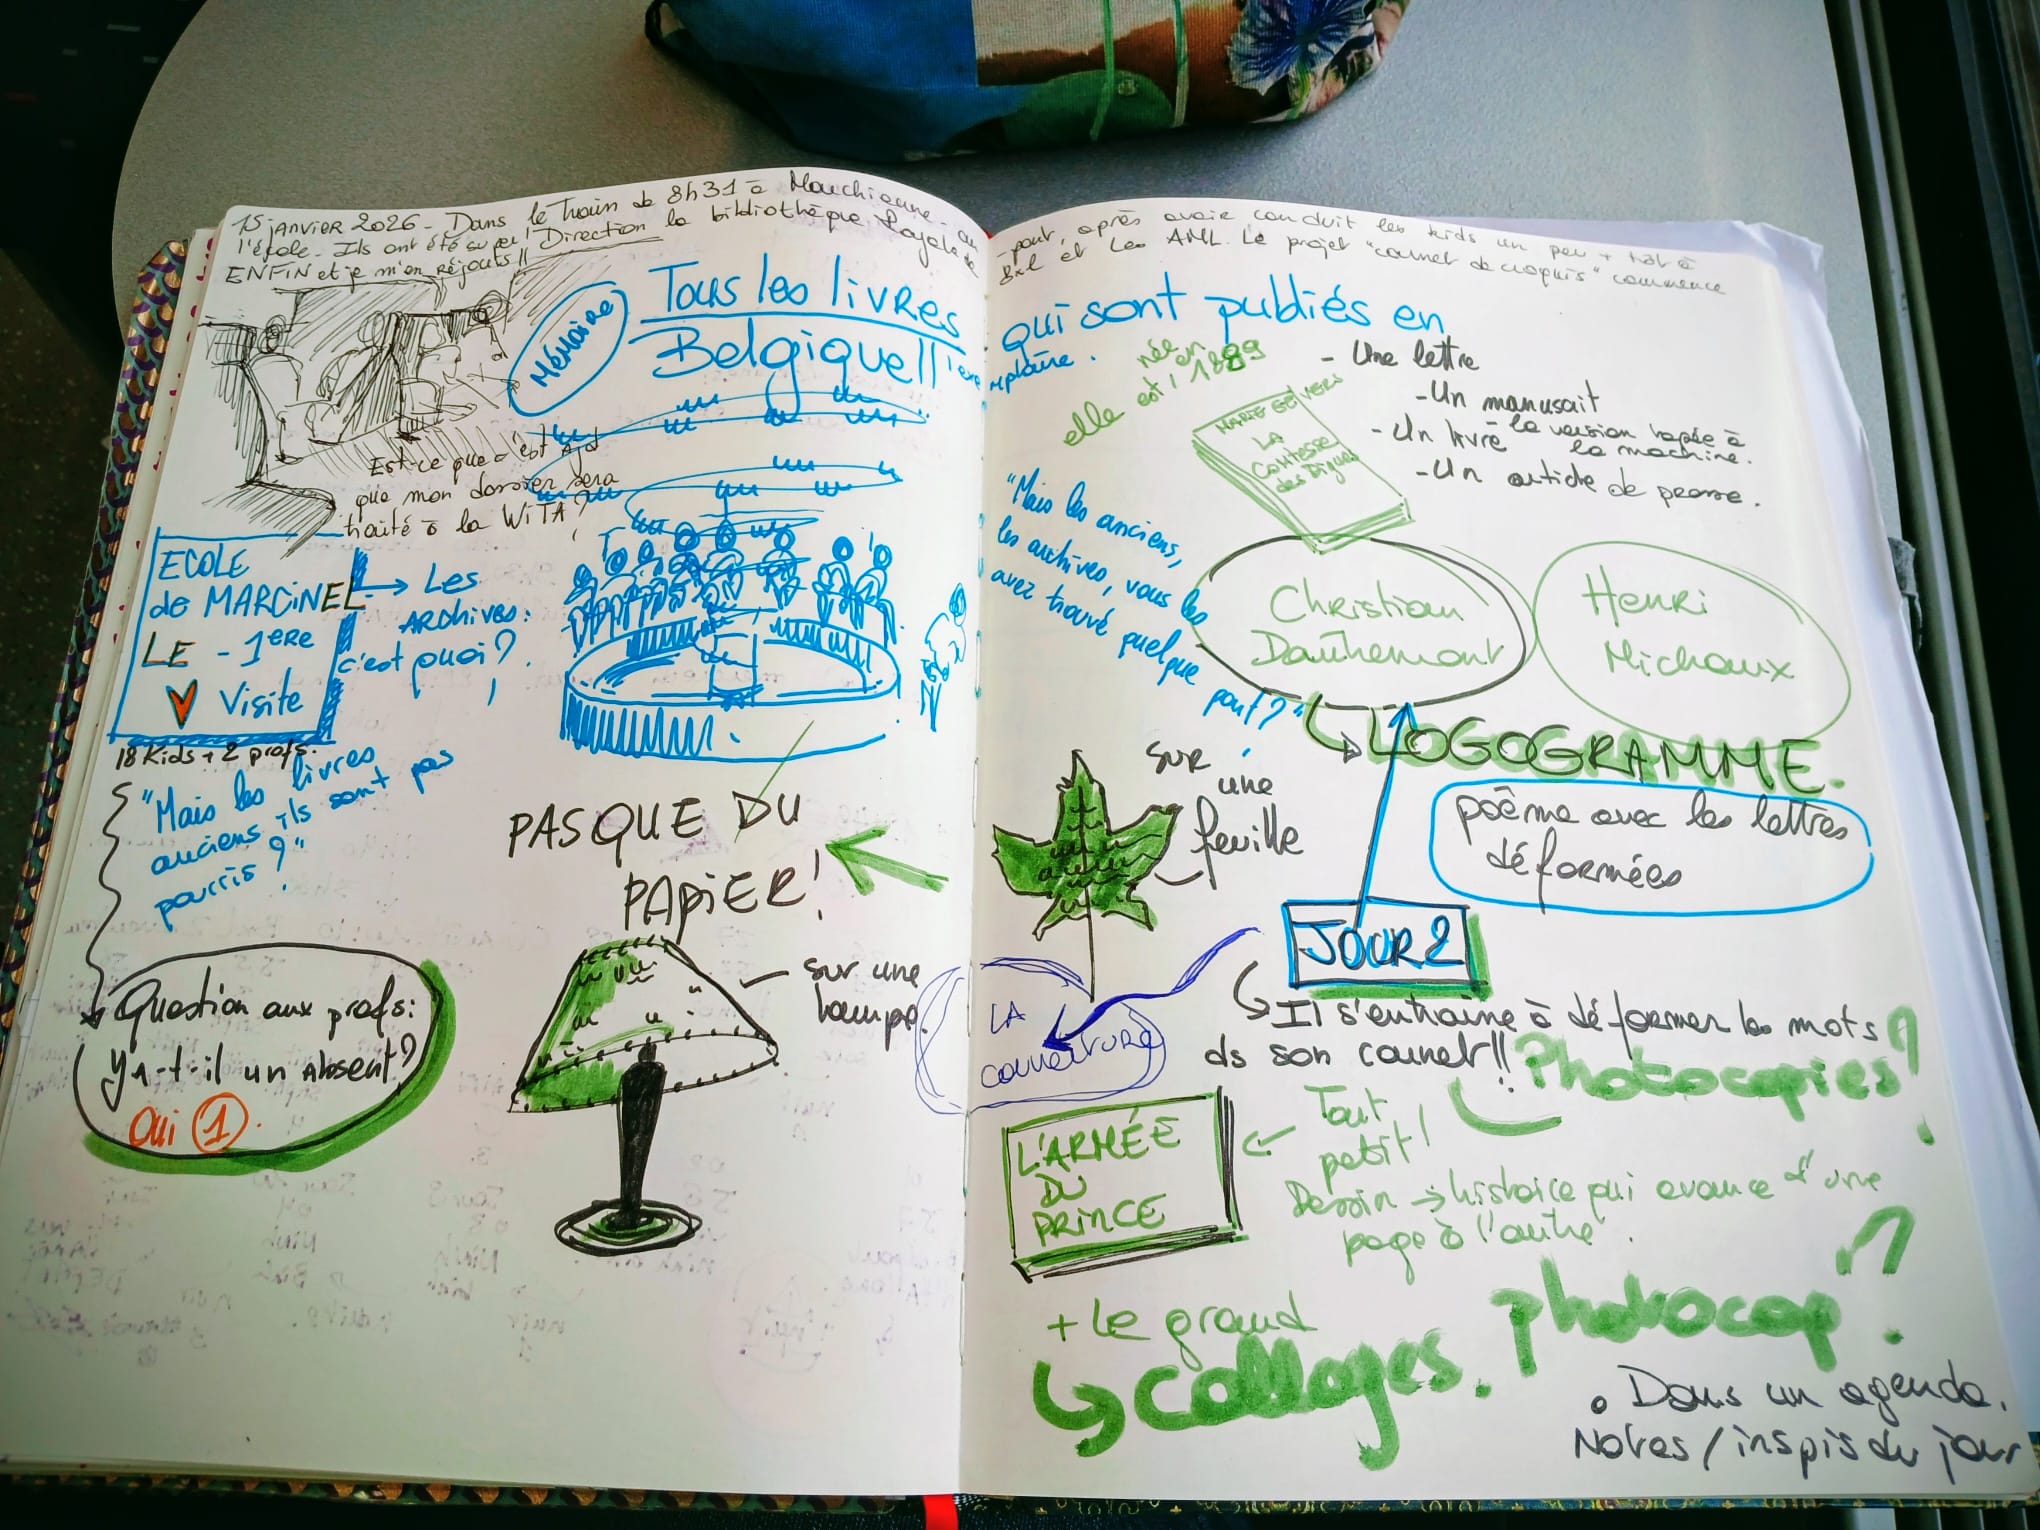 15 janvier 2026 - Dans le train de 8h31 à Marchienne-au
-pont, après avoir conduit les kids un peu + tôt à
l'école. Ils ont été super! Direction la bibliothèque Royale de
Bxl et les AML. Le projet "carnet de croquis" commence
ENFIN et je m'en réjouis!!
Mémoire
Tous les livres
qui sont publiés en
Belgique !! 1 exe
mplaire.
Est-ce que c'est ajd
que mon dossier sera
traité à la WITA?
ECOLE
de MARCINEL
LE - 1ERE
Visite
→ Les
ARCHIVES:
c'est quoi?
18 Kids + 2 profs.
"Mais les livres
anciens ils sont pas
pourris?"
Question aux profs:
Y a-t-il un absent?
Oui 1.
PAS QUE DU
PAPIER!
sur une
lampe.
elle est née en 1889
MARIE GEVERS
LA
COMTESSE
des Digues
- Une lettre
- Un manuscrit
- la version tapée à
la machine.
- Un livre
- Un article de presse.
"Mais les anciens,
les archives, vous les
avez trouvé quelque
part?"
Christian
Dautremont
Henri
Michaux
LOGOGRAMME.
poème avec les lettres
déformées
sur
une
feuille
JOUR 2
Il s'entraîne à déformer les mots
ds son carnet!!
Photocopies?
LA
couverture
L'ARMÉE
DU
PRINCE
Tout
petit!
Dessin → histoire qui avance d'une
page à l'autre.
+ Le grand
collages. photocop?
• Dans un agenda.
Notes / inspis du jour